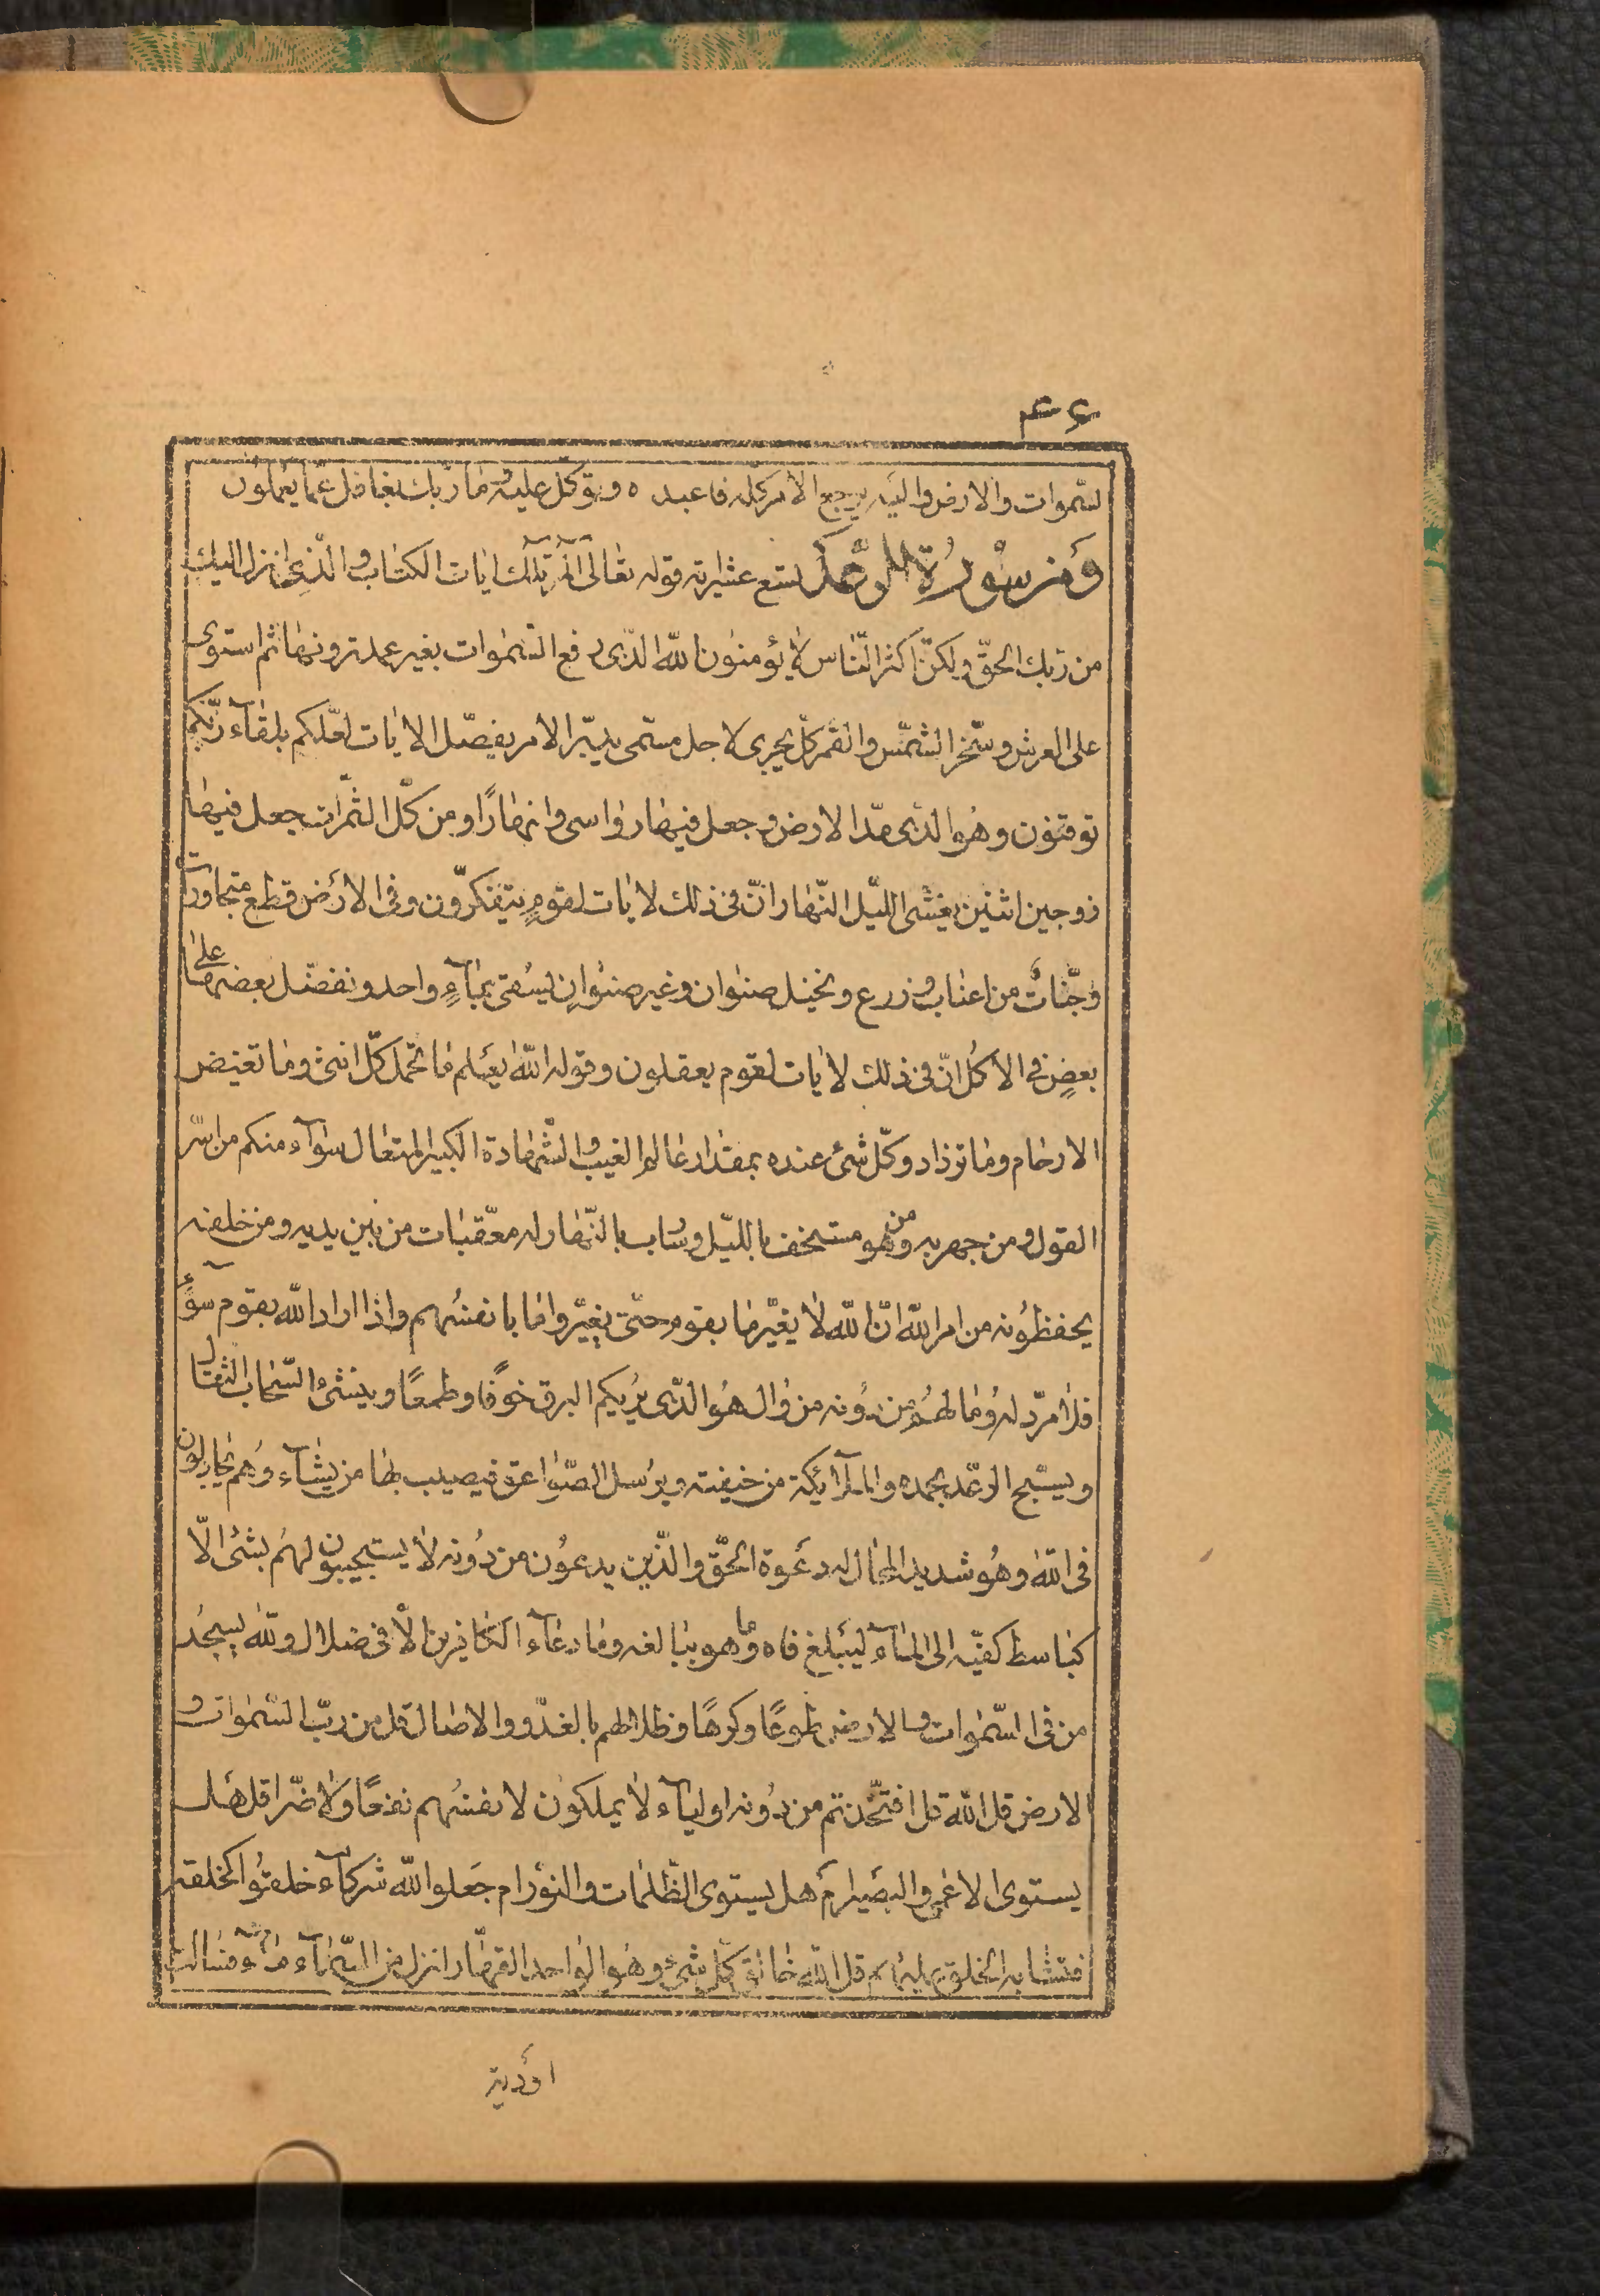 ۴۶
لسّموات والارض واليه يرجع الامر كلّه فاعبده وتوكّل عليه وما ربّك بغافل عمّا يعملون
وَمن سُورُة الرّعد تسع عشر اية قوله تعالى المر تلك ايات الكتاب والّذى انزل اليك
من ربّك الحقّ ولكنّ اكثر النّاس لا يؤمنون الله الّذى رفع السّموات بغير عمد ترونها ثم استوى
على العرش وسخّر الشمّس والقمر كلّ يجرى لاجل مسمّى يدبّر الامر يفصّل الايات لعلّكم بلقآء ربّكم
توقنون وهُو الّذى مدّ الارض وجعل فيها رواسى وانهارًا ومن كلّ الثمّرات جعل فيها
زوجين اثنين يغشى اللّيل النّهار انّ فى ذلك لايات لقومٍ يتفكّرون وفى الارض قطع متجاورات
وجنّاتٌ من اعناب وزرع ونخيل صنوان وغير صنوانٍ يُسقى بمآءٍ واحد ونفضّل بعضها على
بعضٍ فى الاكُل انّ فى ذلك لايات لقوم يعقلون وقوله الله يعلم ما تحمل كلّ انثى وما تغيض
الارحام وما تزداد وكلّ شئ عنده بمقدار عالم الغيب والشّهادة الكبير المتعال سوآء منكم من اسرّ
القول ومن جهر به ومن هو مستخف باللّيل وسارب بالنّهار له معقّبات من بين يديه ومن خلفه
يحفظونه من امر الله انّ الله لا يغيّر ما بقوم حتّى يغيّروا ما بانفسُهم واذا اراد الله بقوم سوءً
فلا مردّ له وما لهُم من دُونه من وال هُو الّذى يُريكم البرق خوفًا وطمعًا وينشئ السّحاب الثقال
ويسبّح الرعّد بحمده والملآئكة من خيفته ويُرسل الصّواعق فيصيب بها من يشآء وهُم يجادلون
فى الله وهُو شديد المحال له دعَوة الحقّ والّذين يدعوُن من دُونه لا يستجيبون لهُم بشئ الّا
كباسط كفيّه الى المآء ليَبلغ فاه وما هو ببالغه وما دعآء الكافرين الّا فى ضلال ولله يسجُد
من فى السّموات والارض طوعًا وكرهًا وظلالهم بالغدّو والاصال قل من ربّ السّموات و
لارض قل الله قل افتخّذتم من دُونه اوليآء لا يملكون لانفسُهم نفعًا ولا ضّرا قل هَل
يستوى الاعمى والبصَير امَ هل يستوى الظّلمات والنوُر ام جعَلوا لله شركآء خلقوُا كخلقه
فتشابه الخلق عليهم قل الله خالق كلّ شئ وهُو الواحد القهّار انزل من السّمآء مآء فسالت
اوَدية